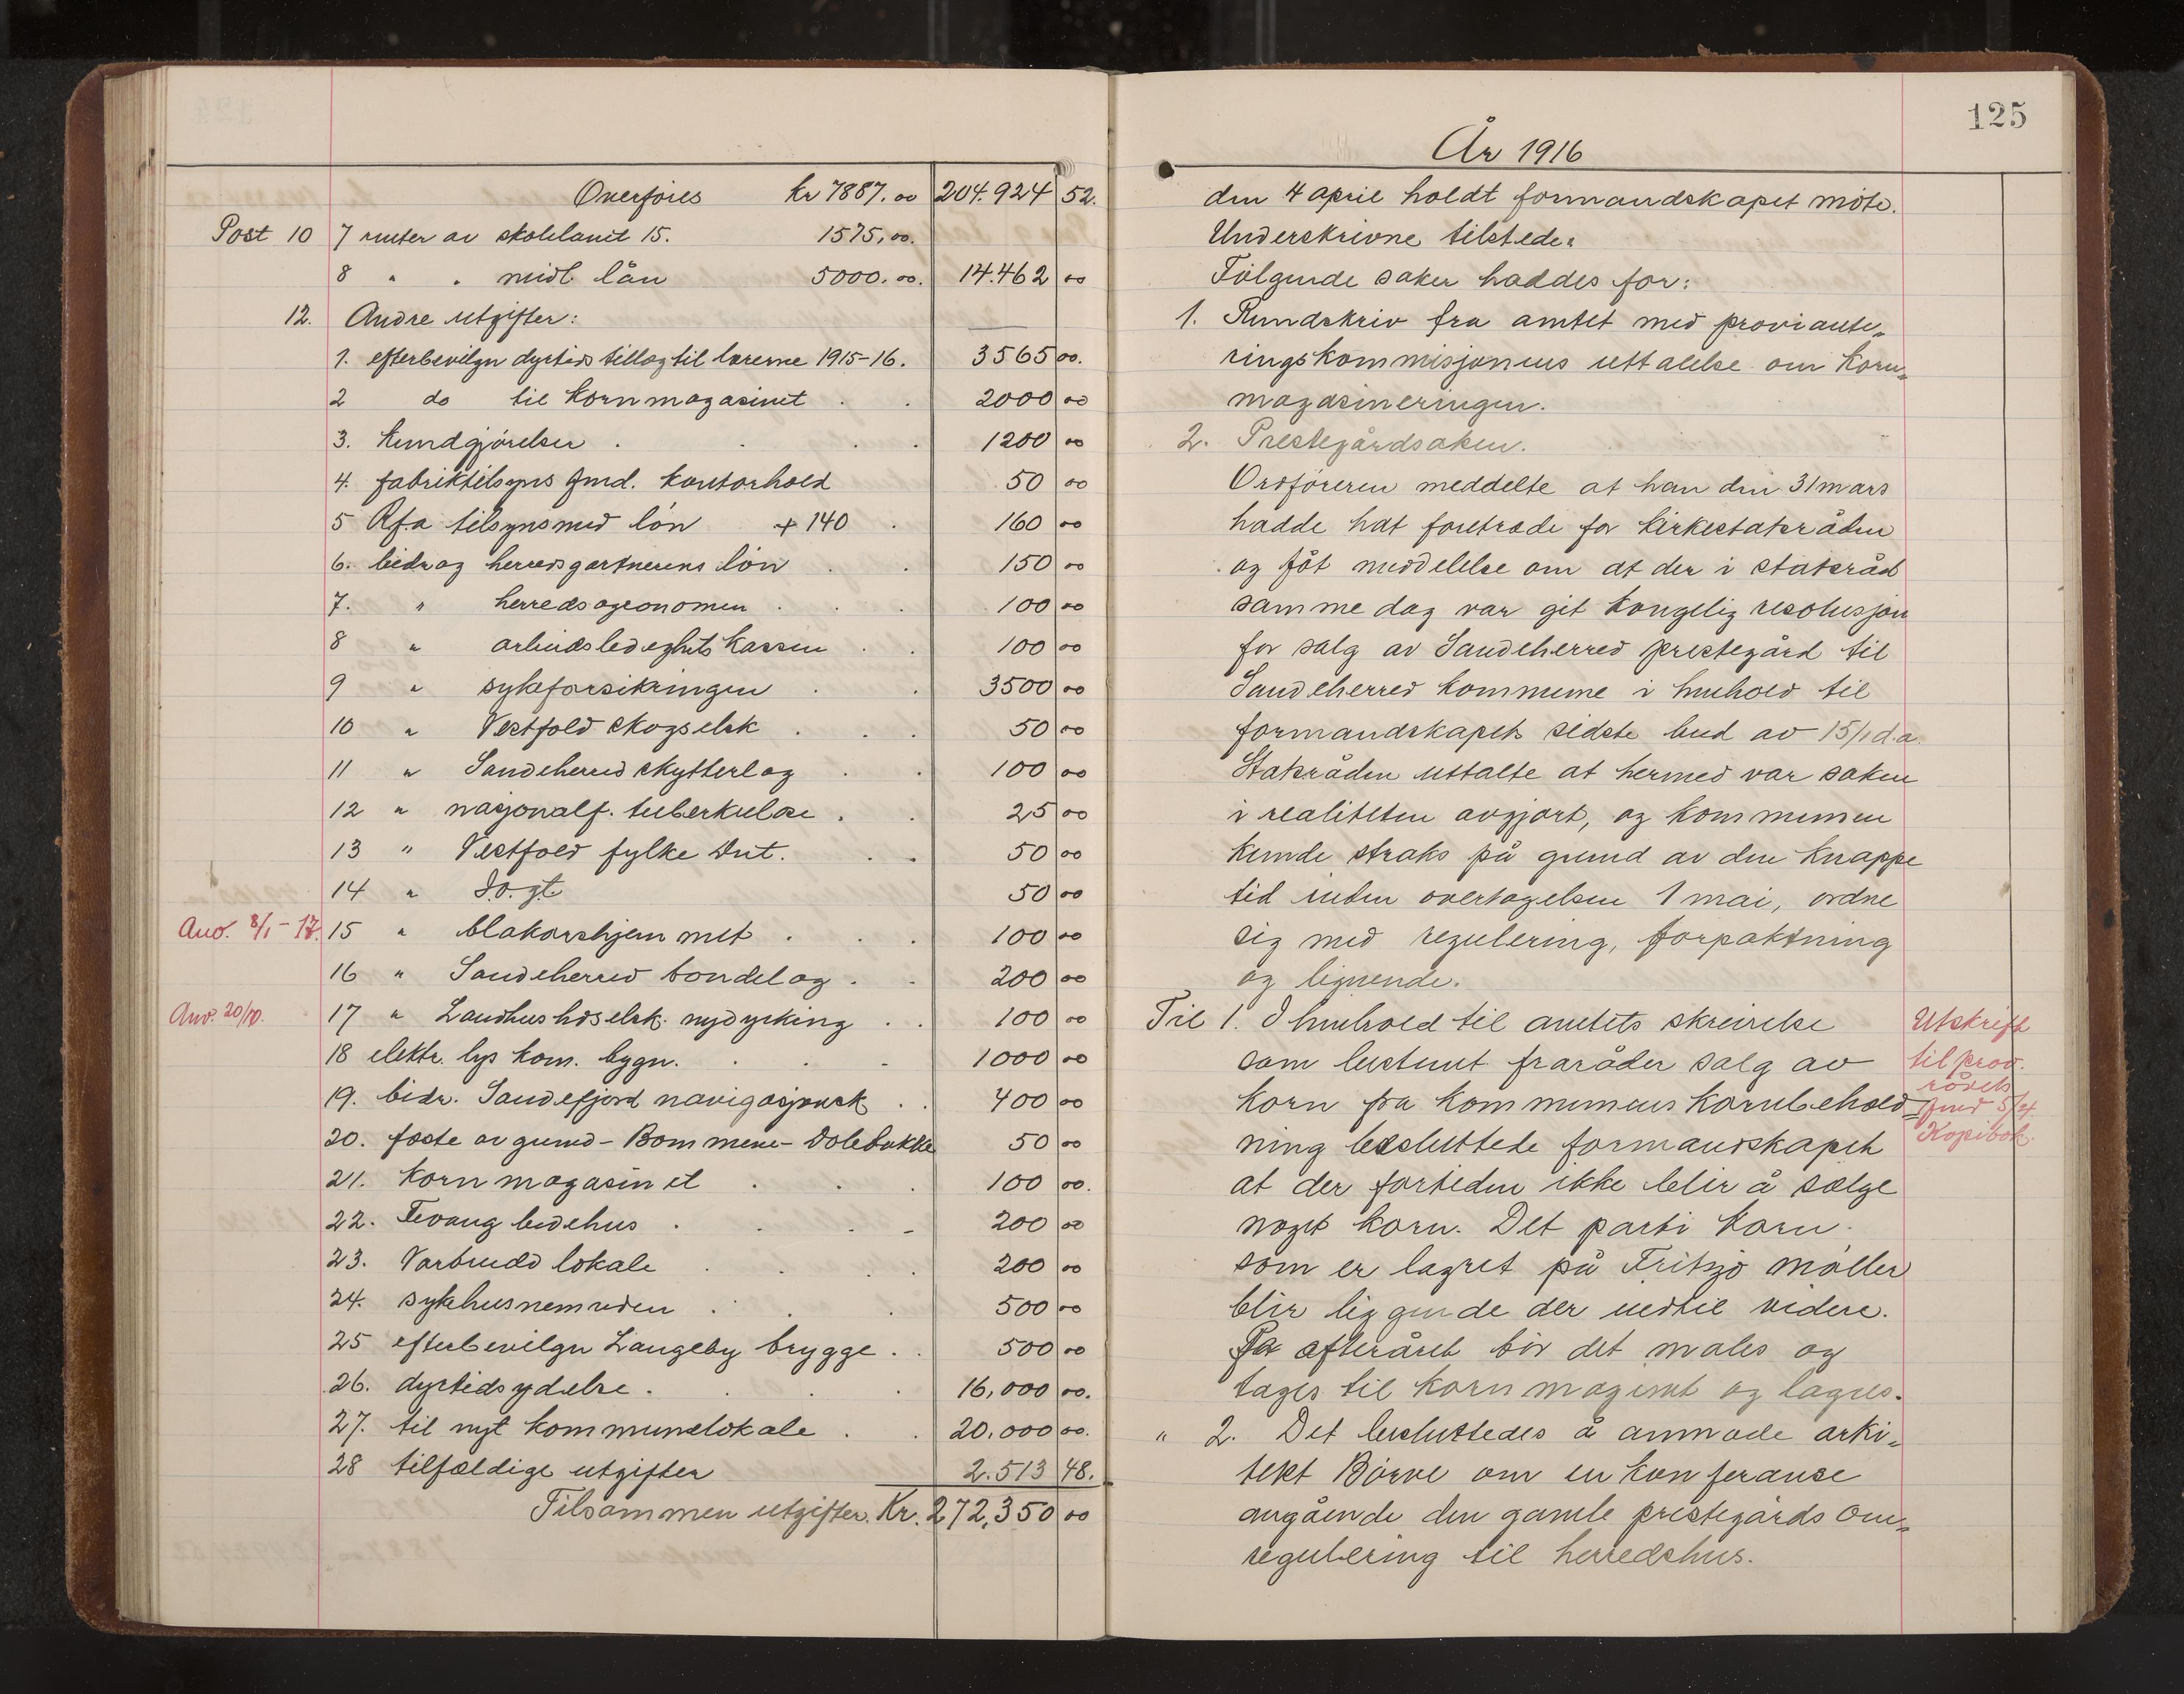 Overføres kr 7887.00 204.924 52.
Post 10 7 renter av skolelånet 15. 1575,00.
8 " " midl. lån 5000.00. 14.462 00
12. Andre utgifter:
1. efterbevilgn dyrtidstillæg til lærerne 1915-16. 3565 00.
2 do til kornmagasinet 2000 00
3. kundgjørelser 1200 00
4. fabriktilsyns fmd. kontorhold 50 00
5 Rfa tilsynsmed lön + 140 160 00
6. bidrag herredsgartnerens lön 150 00
7. " herredsagronomen 100 00
8 " arbeidsledeghets kassen 100 00
9 " sykeforsikringen 3500 00
10 " Vestfold skogselsk 50 00
11 " Sandeherred skytterlag 100 00
12 " nasjonalf. tuberkulose 25 00
13 " Vestfold fylke Dnt. 50 00
14 " I.O.g.t. 50 00
Anv. 8/1-17. 15 " blåkorshjemmet 100 00
16 " Sandeherred bondelag 200 00
Anv. 20/10. 17 " Landhushdselsk. nydyrking 100 00
18 elektr. lys kom. bygn. 1000 00
19. bidr. Sandefjord navigasjonsk 400 00
20. fæste av grund - Bommene - Dølebakke 50 00
21. kornmagasinet 100 00.
22. Fevang bedehus 200 00
23. Vårbrudd lokale 200 00
24. sykehusnemnden 500 00
25 efterbevilgn Langeby brygge 500 00
26. dyrtidsydelse 16,000 00.
27. til nyt kommunelokale 20.000 00.
28 tilfældige utgifter 2.513 48.
Tilsammen utgifter. Kr. 272,350 00
125
År 1916
den 4 april holdt formandskapet möte.
Underskrivne tilstede:
Fölgende saker haddes for:
1. Rundskriv fra amtet med proviante=
ringskommisjonens uttalelse om korn=
magasineringen.
2. Prestegårdsaken.
Ordföreren meddelte at han den 31 mars
hadde hat foretræde for kirkestatsråden
og fåt meddelelse om at der i statsråd
samme dag var git kongelig resolusjon
for salg av Sandeherred prestegård til
Sandeherred kommune i henhold til
formandskapets sidste bud av 15/1 d.a.
Statsråden uttalte at hermed var saken
i realiteten avgjort, og kommunen
kunde straks på grund av den knappe
tid inden overtagelsen 1 mai, ordne
sig med regulering, forpaktning
og lignende.
Til 1. I henhold til amtets skrivelse
som bestemt fraråder salg av
korn fra kommunens kornbehold=
ning besluttede formandskapet
at der fortiden ikke blir å sælge
noget korn. Det parti korn
som er lagret på Fritzö möller
blir liggende der indtil videre.
På efteråret bör det males og
tages til kornmagsinet og lagres.
" 2. Det besluttedes å anmode arki=
tekt Börve om en konferanse
angående den gamle prestegårds om=
regulering til herredshus.
Utskrift
til prov.
rådets
fmd 5/4.
Kopibok.